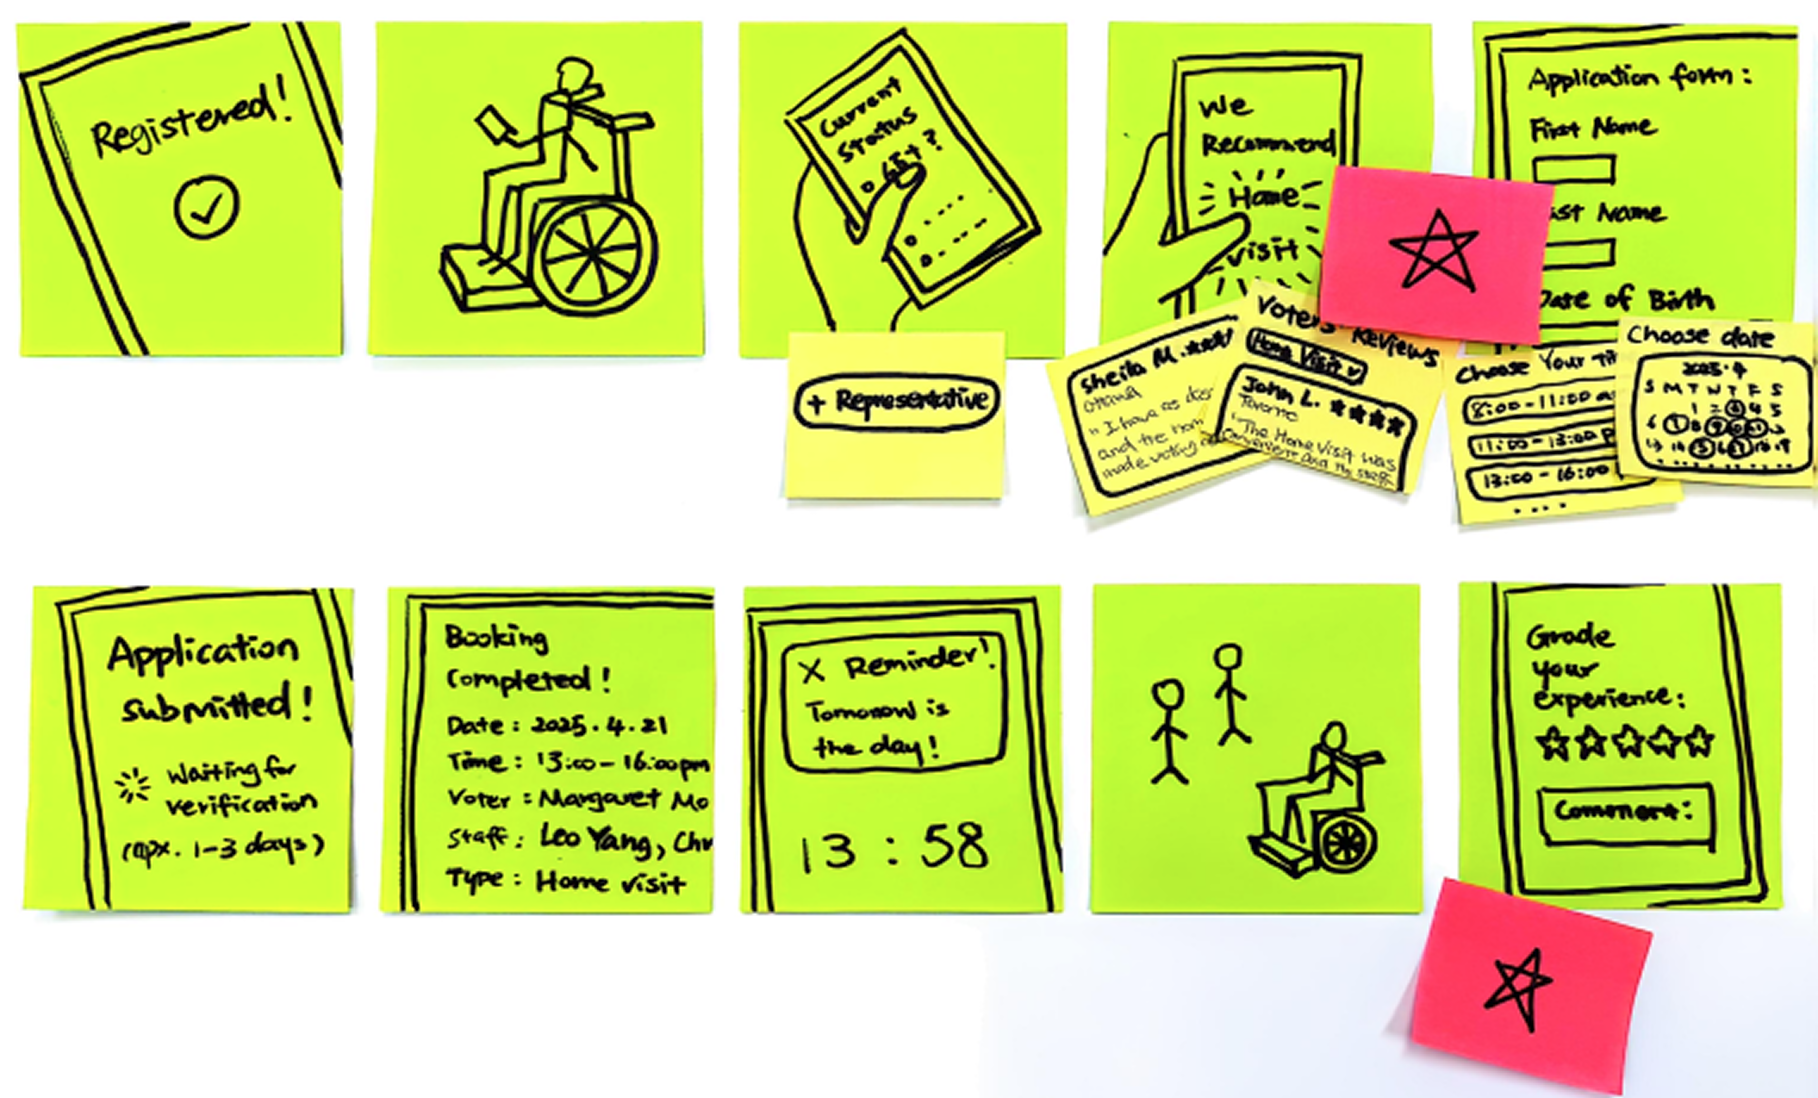 Registered!
Current
Status
?
+ Representative
We
Recommend
Home
visit
Sheila M.
Ottawa
"I have
and the Hom
made voting
Voters' Reviews
Home Visit
John L. ★★★★
Toronto
"The Home Visit was
Convenient and the staff
Application form:
First Name
ast Name
Date of Birth
Choose Your Ti
8:00-11:00 a
11:00-13:00 p
13:00-16:00
...
Choose date
2025.4
S M T W T F S
Application
submitted!
Waiting for
verification
(apx. 1-3 days)
Booking
Completed!
Date: 2025.4.21
Time: 13:00-16:00pm
Voter: Margaret Mo
Staff: Leo Yang, Chr
Type: Home visit
X Reminder!
Tomorrow is
the day!
13:58
Grade
your
experience:
Comment: